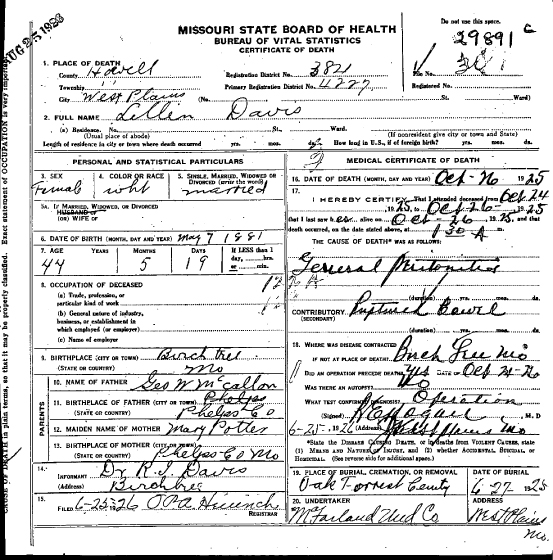 AUG 25 1926
MISSOURI STATE BOARD OF HEALTH
BUREAU OF VITAL STATISTICS
CERTIFICATE OF DEATH
Do not use this space.
29891 c
1. PLACE OF DEATH
County Howell Registration District No. 3821 File No.
Township Primary Registration District No. 4227 Registered No.
City West Plains (No. St. Ward)
2. FULL NAME Lillian Davis
(a) Residence. No. St., Ward.
(Usual place of abode) (If nonresident give city or town and State)
Length of residence in city or town where death occurred yrs. mos. ds. How long in U.S., if of foreign birth? yrs. mos. ds.
PERSONAL AND STATISTICAL PARTICULARS
3. SEX 4. COLOR OR RACE 5. SINGLE, MARRIED, WIDOWED OR DIVORCED (write the word)
Female wht married
5A. IF MARRIED, WIDOWED, OR DIVORCED
HUSBAND OF
(OR) WIFE OF
6. DATE OF BIRTH (MONTH, DAY AND YEAR) May 7 1881
7. AGE YEARS MONTHS DAYS IF LESS than 1 day, hrs. or min.
44 5 19
8. OCCUPATION OF DECEASED
(a) Trade, profession, or
particular kind of work
(b) General nature of industry,
business, or establishment in
which employed (or employer)
(c) Name of employer
9. BIRTHPLACE (CITY OR TOWN) Birch tree
(STATE OR COUNTRY) Mo
PARENTS
10. NAME OF FATHER Geo W McCallon
11. BIRTHPLACE OF FATHER (CITY OR TOWN) Phelps
(STATE OR COUNTRY) Phelps Co
12. MAIDEN NAME OF MOTHER Mary Potter
13. BIRTHPLACE OF MOTHER (CITY OR TOWN)
(STATE OR COUNTRY) Phelps Co Mo
14. INFORMANT Dr R. S. Davis
(Address) Birchtree
15. FILED 6-25-26 REGISTRAR
MEDICAL CERTIFICATE OF DEATH
16. DATE OF DEATH (MONTH, DAY AND YEAR) Oct-26 1925
17. I HEREBY CERTIFY, That I attended deceased from Oct 24
1925, to Oct-26 1925
that I last saw her alive on Oct-26 1925, and that
death occurred, on the date stated above, at 1 30 A
THE CAUSE OF DEATH* WAS AS FOLLOWS:
General Peritonitis
(duration) yrs. mos. ds.
CONTRIBUTORY Ruptured Bowel
(SECONDARY)
(duration) yrs. mos. ds.
18. WHERE WAS DISEASE CONTRACTED
IF NOT AT PLACE OF DEATH? Birch Tree Mo
DID AN OPERATION PRECEDE DEATH? Yes DATE OF Oct 24-26
WAS THERE AN AUTOPSY? No
WHAT TEST CONFIRMED DIAGNOSIS? Operation
(Signed) M. D.
6-25-1926 (Address) West Plains Mo
*State the DISEASE CAUSING DEATH, or in deaths from VIOLENT CAUSES, state
(1) MEANS AND NATURE OF INJURY, and (2) whether ACCIDENTAL, SUICIDAL, or
HOMICIDAL. (See reverse side for additional space.)
19. PLACE OF BURIAL, CREMATION, OR REMOVAL DATE OF BURIAL
Oak Forrest Cemty 6-27-1925
20. UNDERTAKER ADDRESS
McFarland Und Co. West Plains Mo